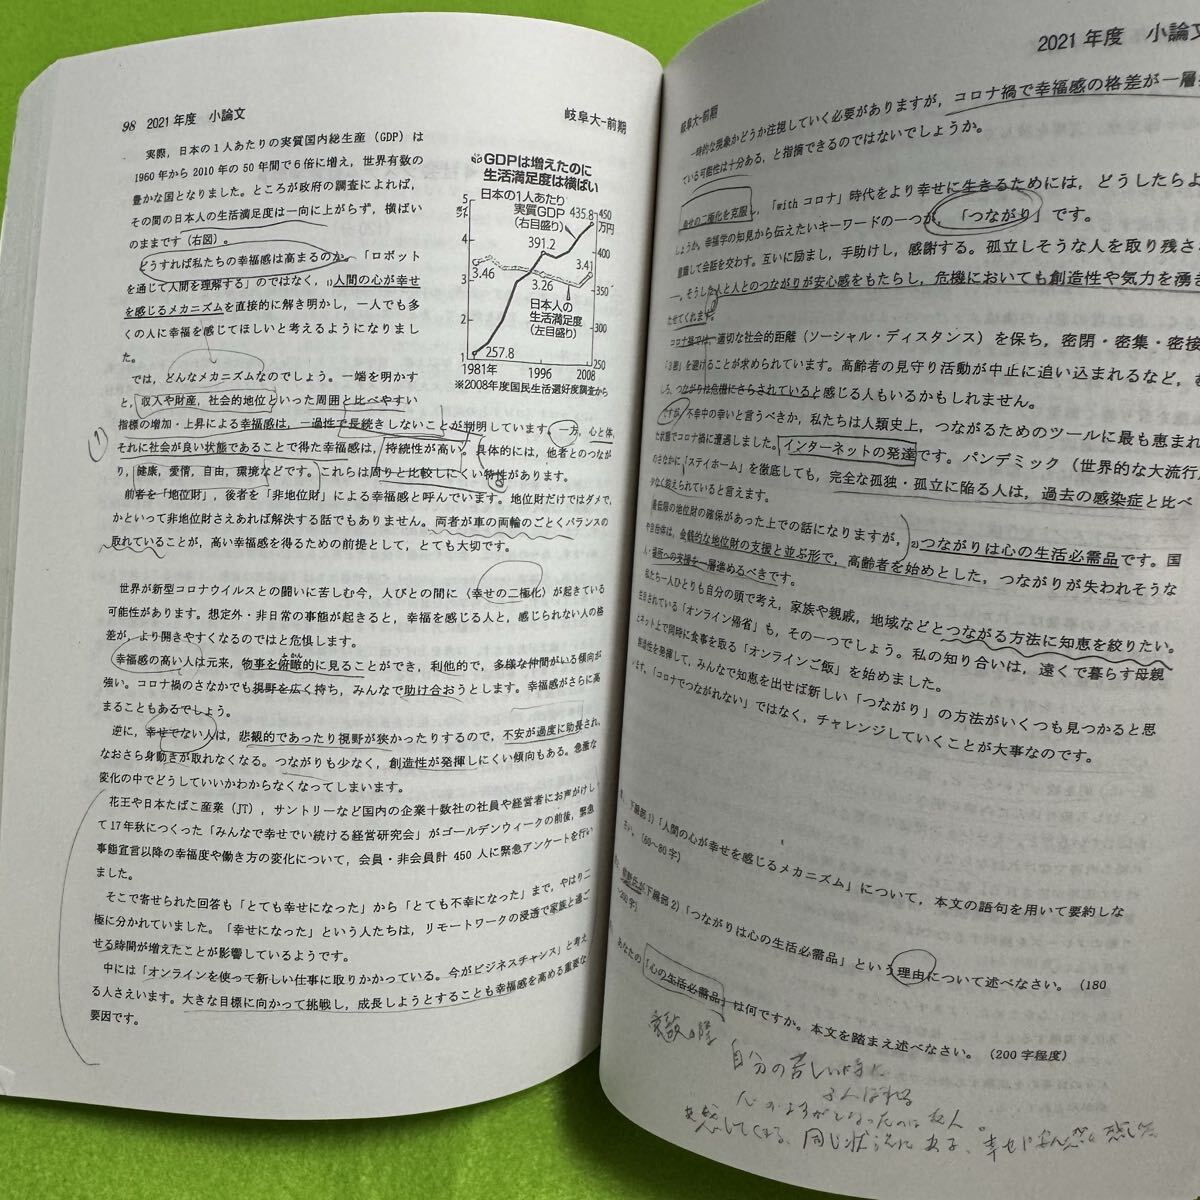 98 2021年度 小論文
岐阜大-前期
実際，日本の1人あたりの実質国内総生産（GDP）は
1960年から2010年の50年間で6倍に増え，世界有数の
豊かな国となりました。ところが政府の調査によれば，
その間の日本人の生活満足度は一向に上がらず，横ばい
のままです（右図）。
どうすれば私たちの幸福感は高まるのか。「ロボット
を通じて人間を理解する」のではなく，1)人間の心が幸せ
を感じるメカニズムを直接的に解き明かし，一人でも多
くの人に幸福を感じてほしいと考えるようになりまし
た。
では，どんなメカニズムなのでしょう。一端を明かす
と，収入や財産，社会的地位といった周囲と比べやすい
指標の増加・上昇による幸福感は，一過性で長続きしないことが判明しています。一方，心と体，
それに社会が良い状態であることで得た幸福感は，持続性が高い。具体的には，他者とのつなが
り，健康，愛情，自由，環境などです。これらは周りと比較しにくい特性があります。
前者を「地位財」，後者を「非地位財」による幸福感と呼んでいます。地位財だけではダメで，
かといって非地位財さえあれば解決する話でもありません。両者が車の両輪のごとくバランスの
取れていることが，高い幸福感を得るための前提として，とても大切です。
GDPは増えたのに
生活満足度は横ばい
日本の1人あたり
実質GDP
（右目盛り）
435.8
450
万円
391.2
400
3.46
3.41
3.26
350
日本人の
生活満足度
（左目盛り）
300
257.8
250
5
4
3
2
1
1981年 1996 2008
※2008年度国民生活選好度調査から
(1)
世界が新型コロナウイルスとの闘いに苦しむ今，人びとの間に〈幸せの二極化〉が起きている
可能性があります。想定外・非日常の事態が起きると，幸福を感じる人と，感じられない人の格
差が，より開きやすくなるのではと危惧します。
幸福感の高い人は元来，物事を俯瞰的に見ることができ，利他的で，多様な仲間がいる傾向が
強い。コロナ禍のさなかでも視野を広く持ち，みんなで助け合おうとします。幸福感がさらに高
まることもあるでしょう。
逆に，幸せでない人は，悲観的であったり視野が狭かったりするので，不安が過度に助長され，
なおさら身動きが取れなくなる。つながりも少なく，創造性が発揮しにくい傾向もある。急激な
変化の中でどうしていいかわからなくなってしまいます。
花王や日本たばこ産業（JT），サントリーなど国内の企業十数社の社員や経営者にお声がけし
て17年秋につくった「みんなで幸せでい続ける経営研究会」がゴールデンウィークの前後，緊急
事態宣言以降の幸福度や働き方の変化について，会員・非会員計450人に緊急アンケートを行い
ました。
そこで寄せられた回答も「とても幸せになった」から「とても不幸になった」まで，やはり二
極に分かれていました。「幸せになった」という人たちは，リモートワークの浸透で家族と過ご
せる時間が増えたことが影響しているようです。
中には「オンラインを使って新しい仕事に取りかかっている。今がビジネスチャンス」と考え
る人さえいます。大きな目標に向かって挑戦し，成長しようとすることも幸福感を高める重要な
要因です。
2021年度 小論文
岐阜大-前期
一時的な現象かどうか注視していく必要がありますが，コロナ禍で幸福感の格差が一層
ている可能性は十分ある，と指摘できるのではないでしょうか。
幸せの二極化を克服し，「withコロナ」時代をより幸せに生きるためには，どうしたらよ
しょうか。幸福学の知見から伝えたいキーワードの一つが，「つながり」です。
意識して会話を交わす。互いに励まし，手助けし，感謝する。孤立しそうな人を取り残さ
―。そうした人と人とのつながりが安心感をもたらし，危機においても創造性や気力を湧き
たたせてくれます。
コロナ禍では，適切な社会的距離（ソーシャル・ディスタンス）を保ち，密閉・密集・密接
「3密」を避けることが求められています。高齢者の見守り活動が中止に追い込まれるなど，む
しろ，つながりは危機にさらされていると感じる人もいるかもしれません。
ですが，不幸中の幸いと言うべきか，私たちは人類史上，つながるためのツールに最も恵まれ
た状態でコロナ禍に遭遇しました。インターネットの発達です。パンデミック（世界的な大流行）
のさなかに「ステイホーム」を徹底しても，完全な孤独・孤立に陥る人は，過去の感染症と比べ
少なく抑えられていると言えます。
最低限の地位財の確保があった上での話になりますが，2)つながりは心の生活必需品です。国
や自治体は，金銭的な地位財の支援と並ぶ形で，高齢者を始めとした，つながりが失われそうな
人・場所への支援を一層進めるべきです。
私たち一人ひとりも自分の頭で考え，家族や親戚，地域などとつながる方法に知恵を絞りたい。
注目されている「オンライン帰省」も，その一つでしょう。私の知り合いは，遠くで暮らす母親
とネット上で同時に食事を取る「オンラインご飯」を始めました。
創造性を発揮して，みんなで知恵を出せば新しい「つながり」の方法がいくつも見つかると思
います。「コロナでつながれない」ではなく，チャレンジしていくことが大事なのです。
下線部1)「人間の心が幸せを感じるメカニズム」について，本文の語句を用いて要約しな
さい。（60～80字）
下線部2)「つながりは心の生活必需品」という理由について述べなさい。（180
～200字）
あなたの「心の生活必需品」は何ですか。本文を踏まえ述べなさい。（200字程度）
自分の苦しい時に